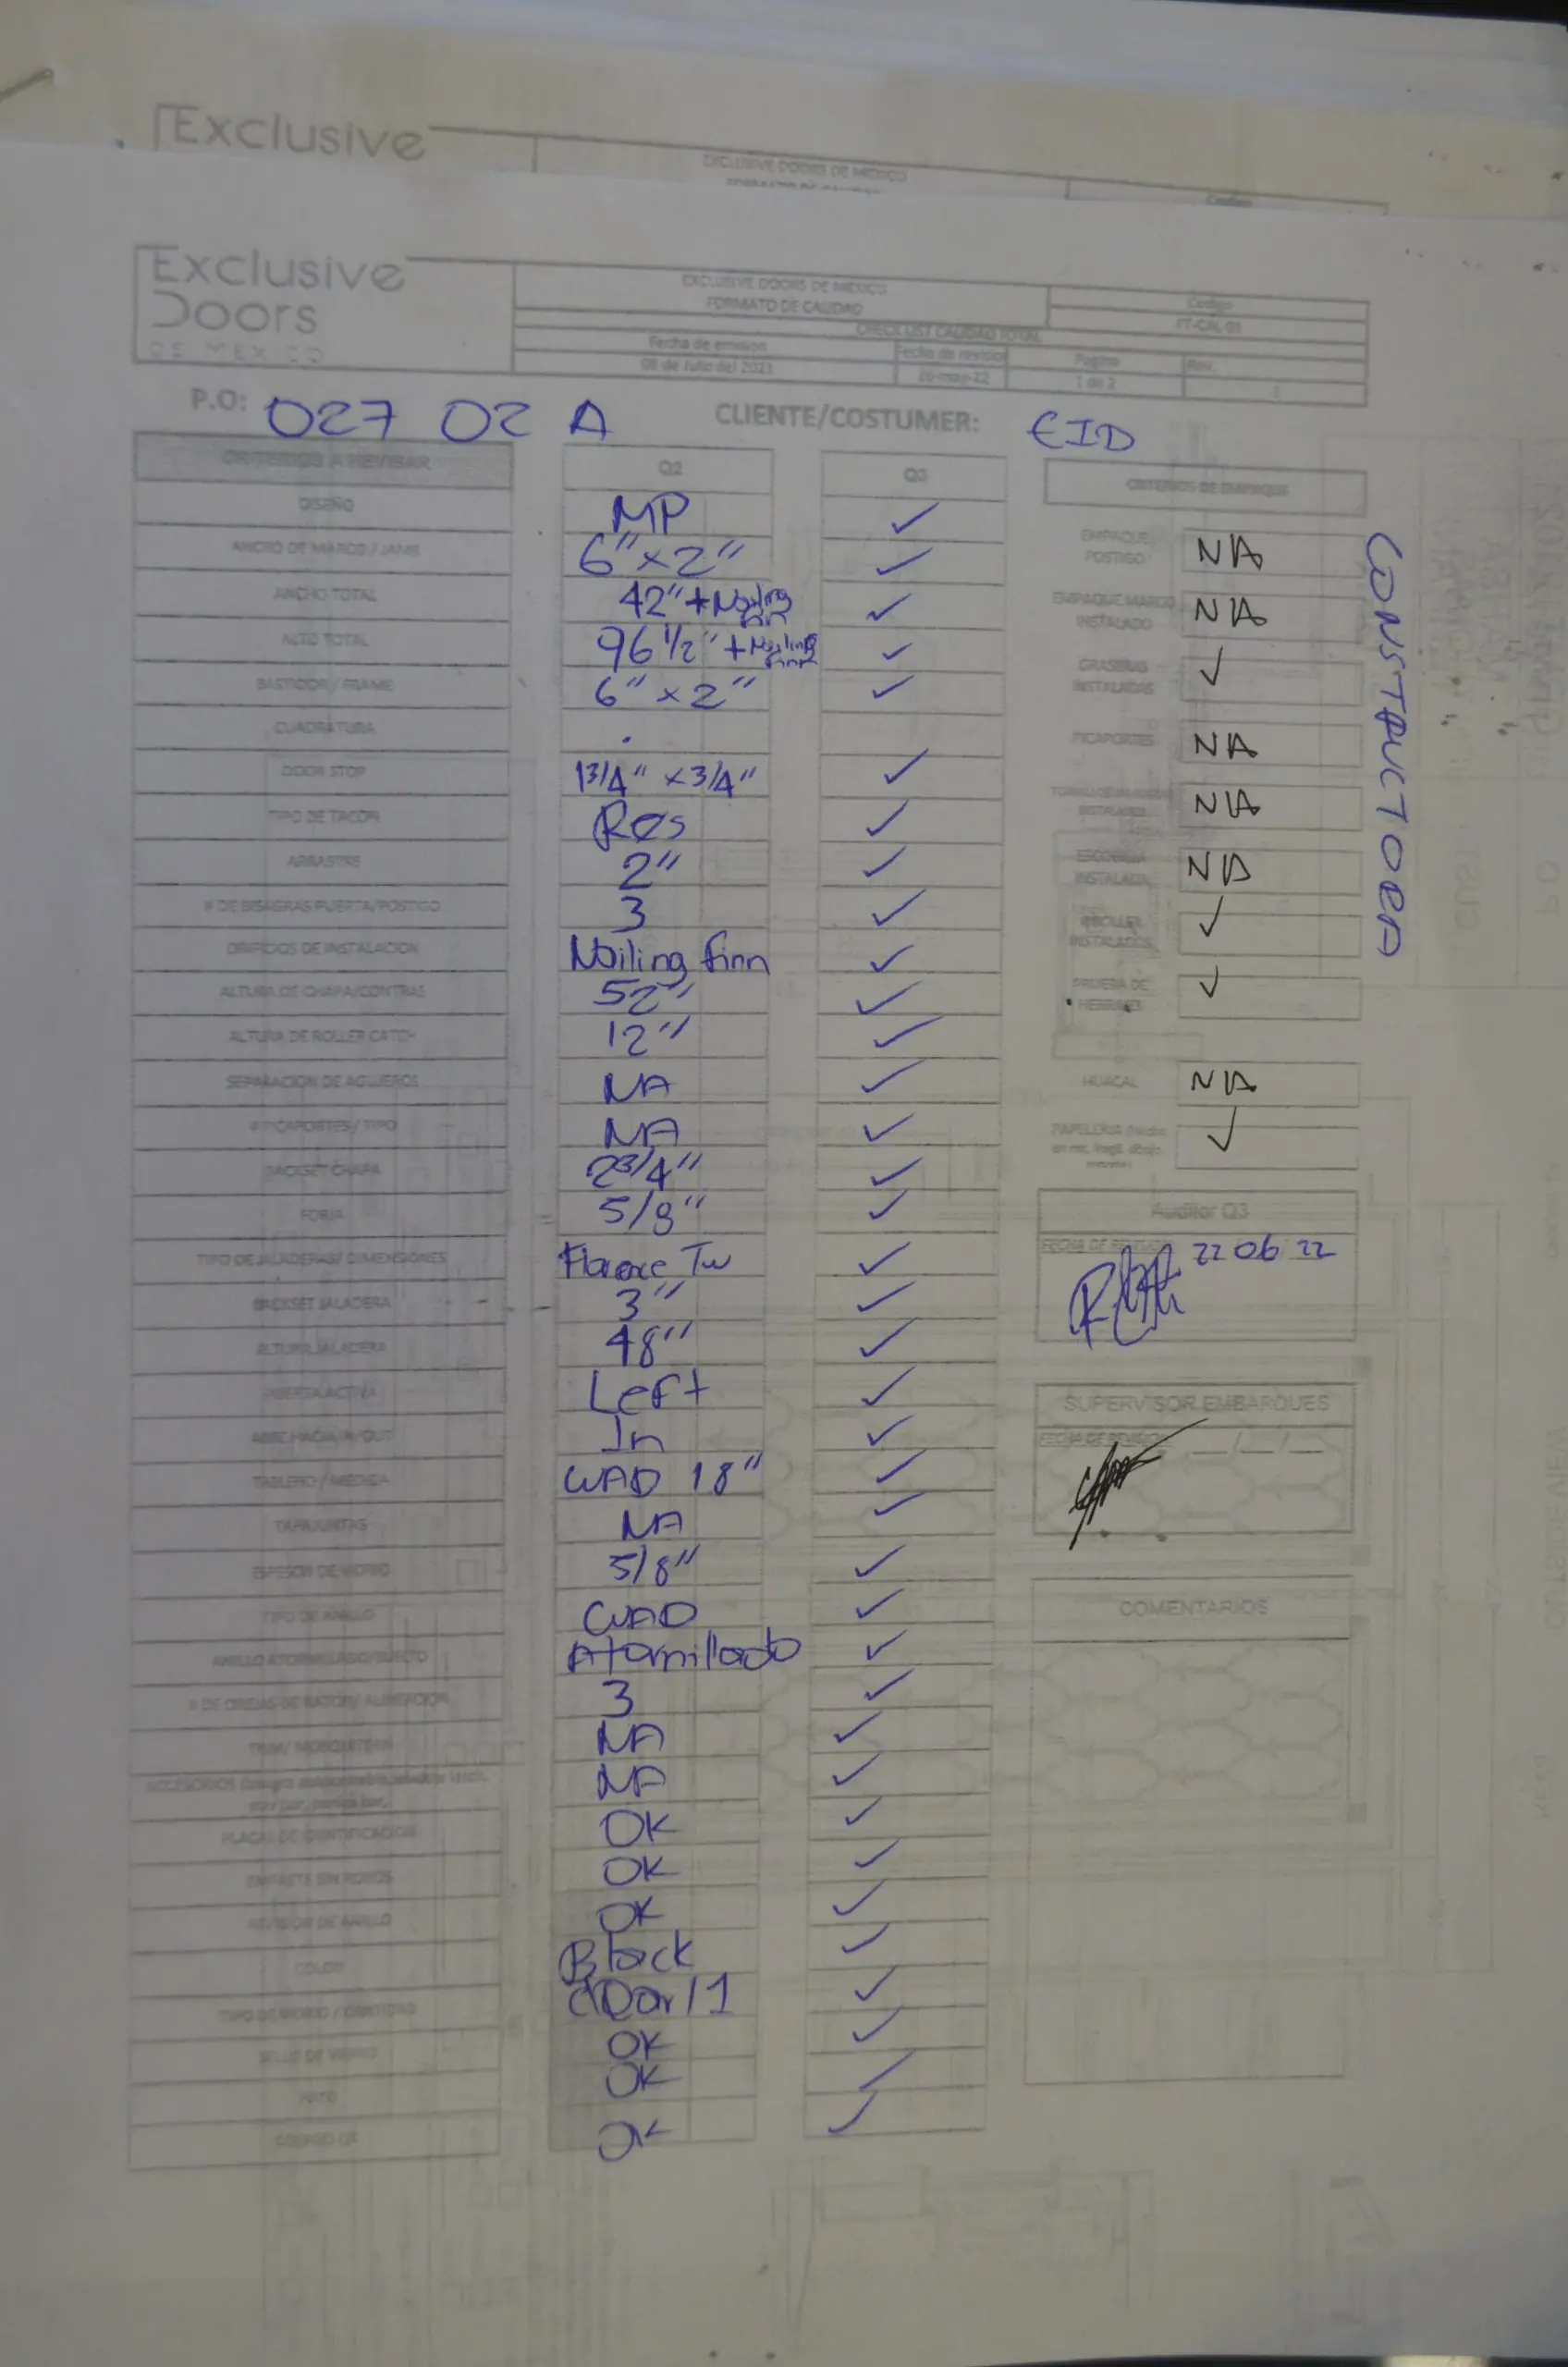 Exclusive
EXCLUSIVE DOORS DE MEXICO
Exclusive
Doors
DE MEXICO
EXCLUSIVE DOORS DE MEXICO
FORMATO DE CALIDAD
CHECK LIST CALIDAD TOTAL
Codigo
FT-CAL-05
Fecha de emision
Fecha de revision
Pagina
Rev.
08 de Julio del 2021
26-may-22
1 de 2
P.O: 027 02 A CLIENTE/COSTUMER: EID
CRITERIOS A REVISAR Q2 Q3 CRITERIOS DE EMPAQUE
DISEÑO MP ✓
ANCHO DE MARCO / JAMB 6"x2" ✓
ANCHO TOTAL 42"+Nailing ✓
ALTO TOTAL 96 1/2"+Nailing ✓
BASTIDOR / FRAME 6"x2" ✓
CUADRATURA .
DOOR STOP 13/4" x 3/4" ✓
TIPO DE TACON Res ✓
ARRASTRE 2" ✓
# DE BISAGRAS PUERTA/POSTIGO 3 ✓
ORIFICIOS DE INSTALACION Nailing finn ✓
ALTURA DE CHAPA/CONTRAS 52" ✓
ALTURA DE ROLLER CATCH 12" ✓
SEPARACION DE AGUJEROS NA ✓
# PICAPORTES / TIPO NA ✓
BACKSET CHAPA 23/4" ✓
FORJA 5/8" ✓
TIPO DE JALADERAS/ DIMENSIONES ✓
BACKSET JALADERA 3" ✓
ALTURA JALADERA 48" ✓
PUERTA ACTIVA Left ✓
ABRE HACIA IN/OUT In ✓
TABLERO / MEDIDA 18" ✓
TAPAJUNTAS NA ✓
ESPESOR DE VIDRIO 5/8" ✓
TIPO DE ANILLO ✓
ANILLO ATORNILLADO/SUELTO Atornillado ✓
# DE OREJAS DE RATON/ ALINEACION 3 ✓
TRIM/ MOSQUITERO NA ✓
ACCESORIOS NA ✓
PLACAS DE IDENTIFICACION OK ✓
EMPASTE SIN POROS OK ✓
OK ✓
COLOR Black ✓
TIPO DE VIDRIO / CANTIDAD ✓
SELLO DE VIDRIO OK ✓
FOTO OK ✓
CODIGO QR OK ✓
EMPAQUE POSTIGO NA
EMPAQUE MARCO INSTALADO NA
GRASERAS INSTALADAS ✓
PICAPORTES NA
INSTALADOS NA
ESCOBILLA INSTALADA NA
ROLLER INSTALADOS ✓
PRUEBA DE HERRAJES ✓
HUACAL NA
PAPELERIA ✓
CONSTRUCTORA
Auditor Q3
FECHA DE REVISION 22 06 22
SUPERVISOR EMBARQUES
FECHA DE REVISION __/__/__
COMENTARIOS